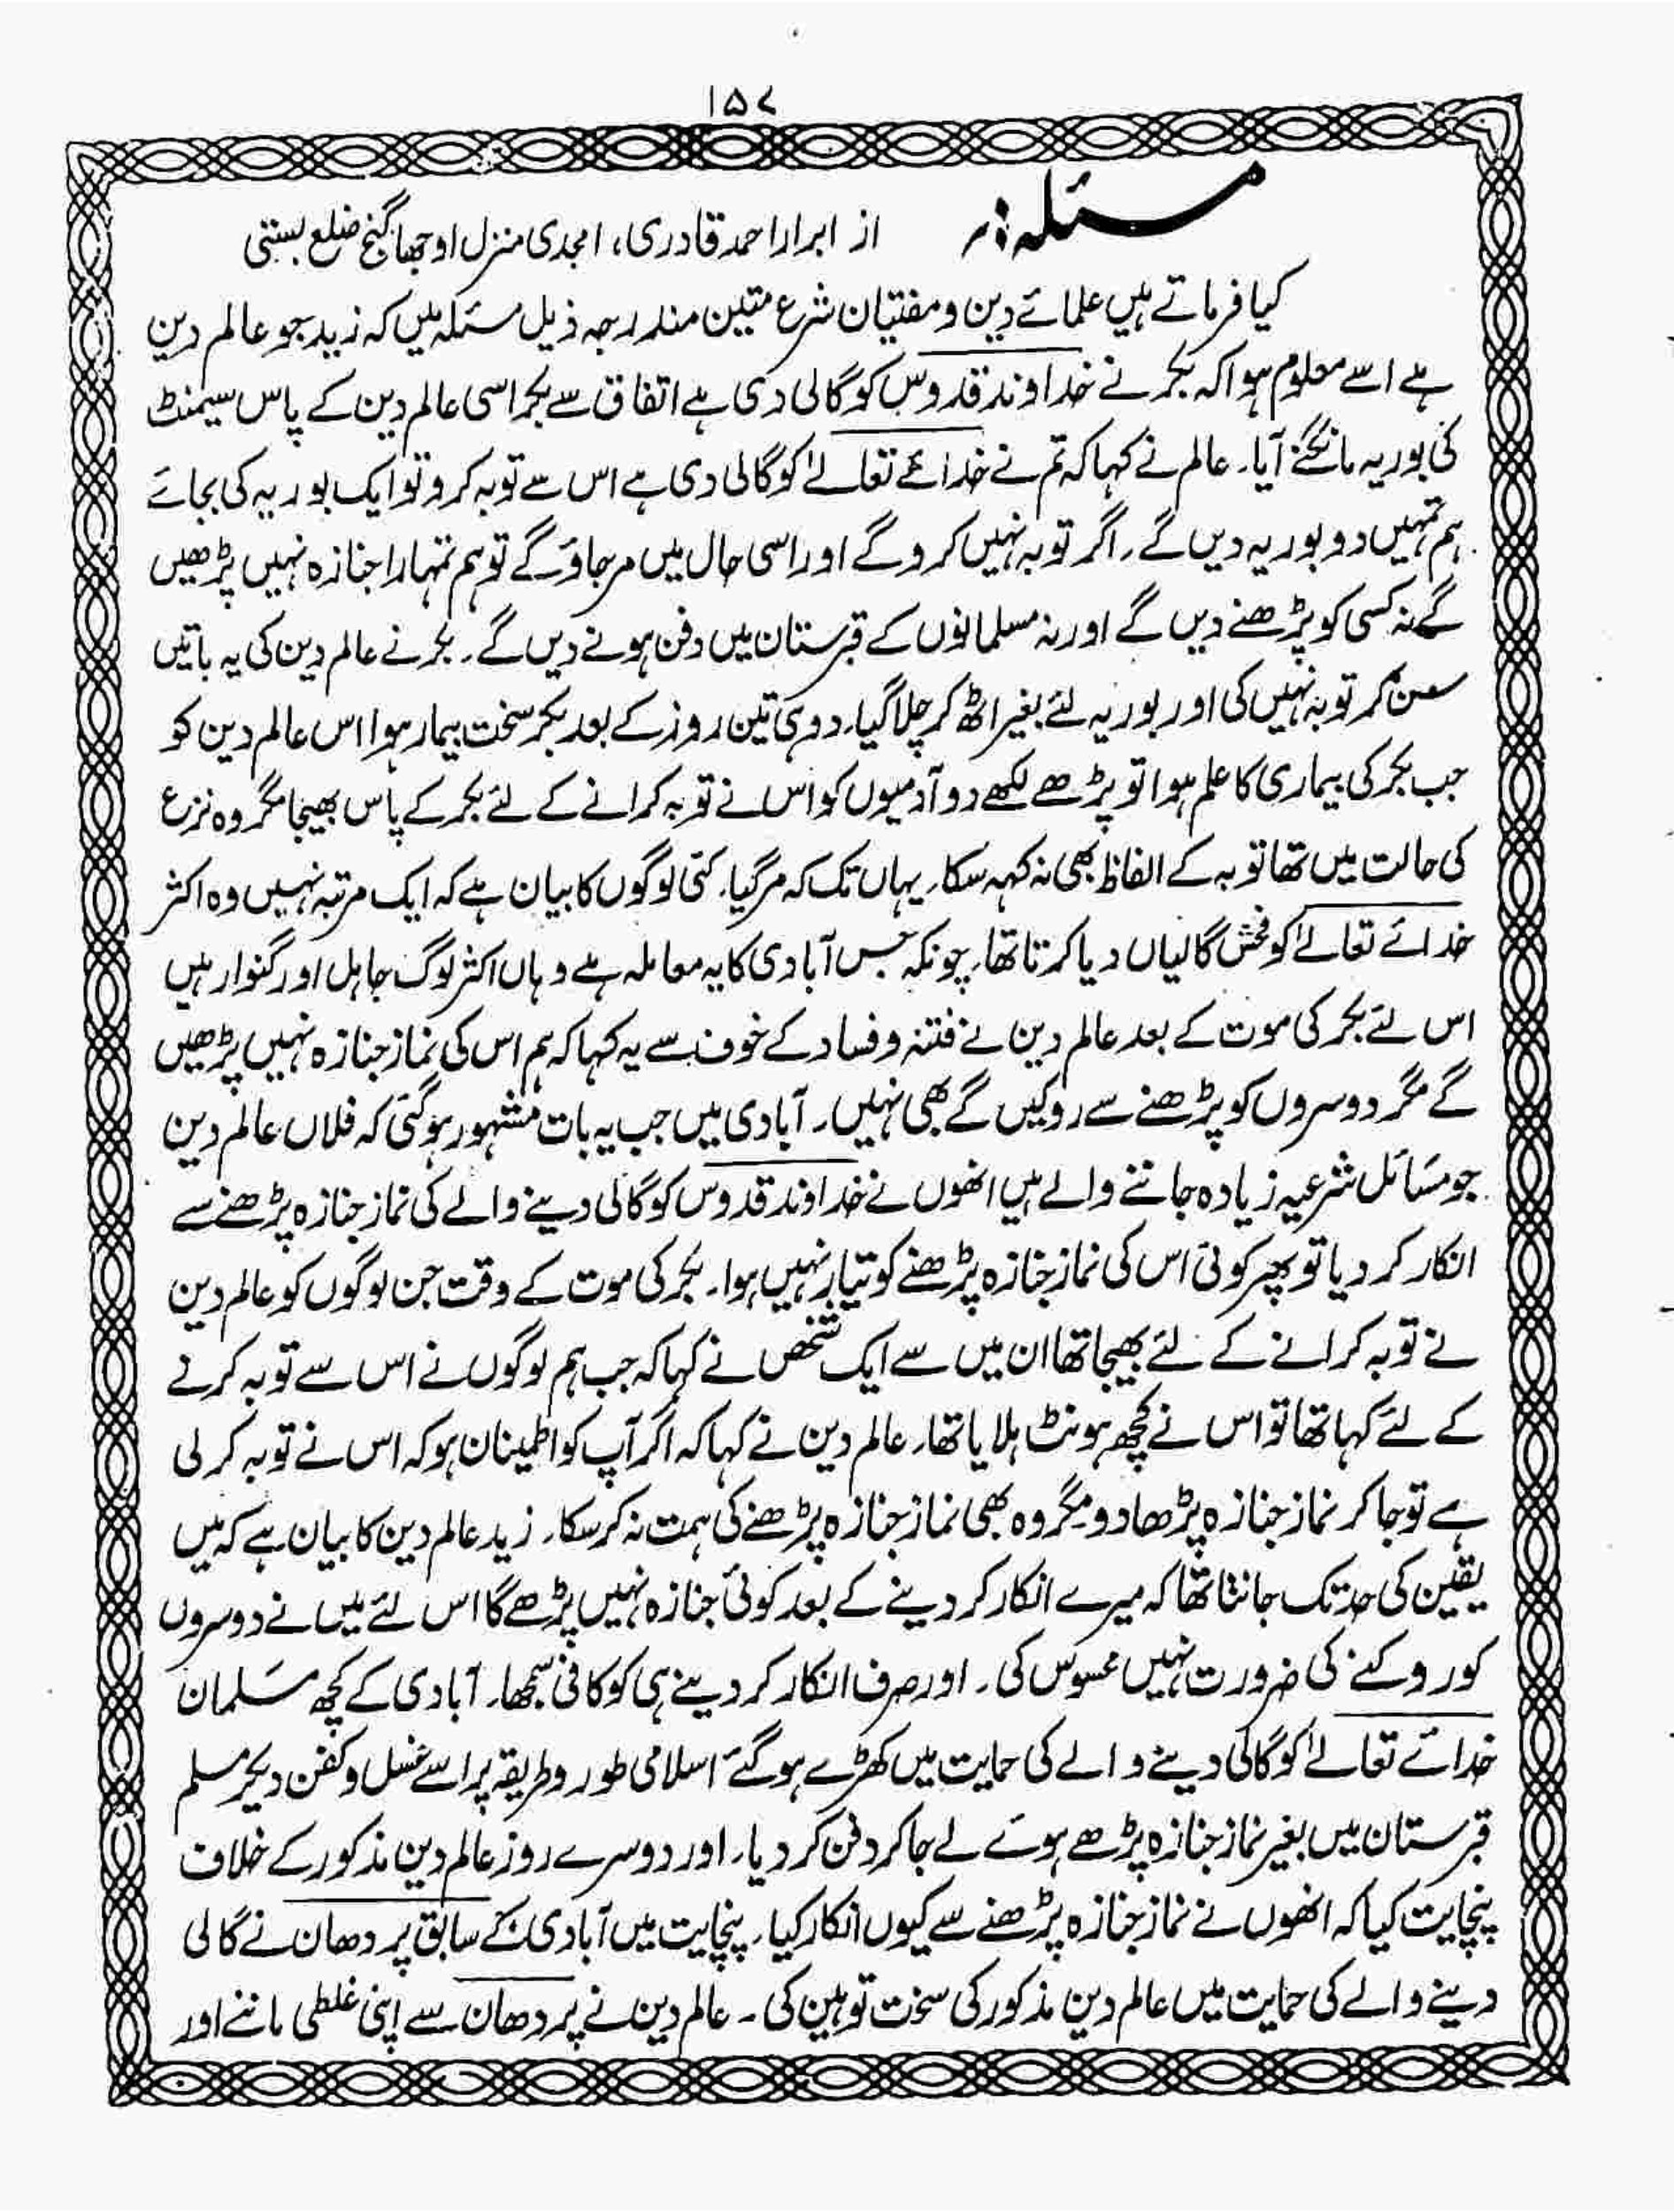 ۱۵۷
مسئلہ:۔ از ابرار احمد قادری، امجدی منزل اوجھا گنج ضلع بستی
کیا فرماتے ہیں علمائے دین و مفتیان شرع متین مندرجہ ذیل مسئلہ میں کہ زید جو عالم دین
ہے اسے معلوم ہوا کہ بکر نے خداوند قدوس کو گالی دی ہے اتفاق سے بکر اسی عالم دین کے پاس سیمنٹ
کی بوریہ مانگنے آیا۔ عالم نے کہا کہ تم نے خدائے تعالےٰ کو گالی دی ہے اس سے توبہ کرو تو ایک بوریہ کی بجائے
ہم تمہیں دو بوریہ دیں گے۔ اگر توبہ نہیں کرو گے اور اسی حال میں مر جاؤ گے تو ہم تمہارا جنازہ نہیں پڑھیں
گے نہ کسی کو پڑھنے دیں گے اور نہ مسلمانوں کے قبرستان میں دفن ہونے دیں گے۔ بکر نے عالم دین کی یہ باتیں
سن کر توبہ نہیں کی اور بوریہ لئے بغیر اٹھ کر چلا گیا۔ دو ہی تین روز کے بعد بکر سخت بیمار ہوا اس عالم دین کو
جب بکر کی بیماری کا علم ہوا تو پڑھے لکھے دو آدمیوں کو اس نے توبہ کرانے کے لئے بکر کے پاس بھیجا مگر وہ نزع
کی حالت میں تھا توبہ کے الفاظ بھی نہ کہہ سکا۔ یہاں تک کہ مر گیا۔ کئی لوگوں کا بیان ہے کہ ایک مرتبہ نہیں وہ اکثر
خدائے تعالےٰ کو فحش گالیاں دیا کرتا تھا۔ چونکہ جس آبادی کا یہ معاملہ ہے وہاں اکثر لوگ جاہل اور گنوار ہیں
اس لئے بکر کی موت کے بعد عالم دین نے فتنہ و فساد کے خوف سے یہ کہا کہ ہم اس کی نماز جنازہ نہیں پڑھیں
گے مگر دوسروں کو پڑھنے سے روکیں گے بھی نہیں۔ آبادی میں جب یہ بات مشہور ہو گئی کہ فلاں عالم دین
جو مسائل شرعیہ زیادہ جاننے والے ہیں انھوں نے خداوند قدوس کو گالی دینے والے کی نماز جنازہ پڑھنے سے
انکار کر دیا تو پھر کوئی اس کی نماز جنازہ پڑھنے کو تیار نہیں ہوا۔ بکر کی موت کے وقت جن لوگوں کو عالم دین
نے توبہ کرانے کے لئے بھیجا تھا ان میں سے ایک شخص نے کہا کہ جب ہم لوگوں نے اس سے توبہ کرنے
کے لئے کہا تھا تو اس نے کچھ ہونٹ ہلایا تھا۔ عالم دین نے کہا کہ اگر آپ کو اطمینان ہو کہ اس نے توبہ کر لی
ہے تو جا کر نماز جنازہ پڑھا دو مگر وہ بھی نماز جنازہ پڑھنے کی ہمت نہ کر سکا۔ زید عالم دین کا بیان ہے کہ میں
یقین کی حد تک جانتا تھا کہ میرے انکار کر دینے کے بعد کوئی جنازہ نہیں پڑھے گا اس لئے میں نے دوسروں
کو روکنے کی ضرورت نہیں محسوس کی۔ اور صرف انکار کر دینے ہی کو کافی سمجھا۔ آبادی کے کچھ مسلمان
خدائے تعالےٰ کو گالی دینے والے کی حمایت میں کھڑے ہو گئے اسلامی طور و طریقہ پر اسے غسل و کفن دیکر مسلم
قبرستان میں بغیر نماز جنازہ پڑھے ہوئے لے جا کر دفن کر دیا۔ اور دوسرے روز عالم دین مذکور کے خلاف
پنچایت کیا کہ انھوں نے نماز جنازہ پڑھنے سے کیوں انکار کیا۔ پنچایت میں آبادی کے سابق پردھان نے گالی
دینے والے کی حمایت میں عالم دین مذکور کی سخت توہین کی۔ عالم دین نے پردھان سے اپنی غلطی ماننے اور